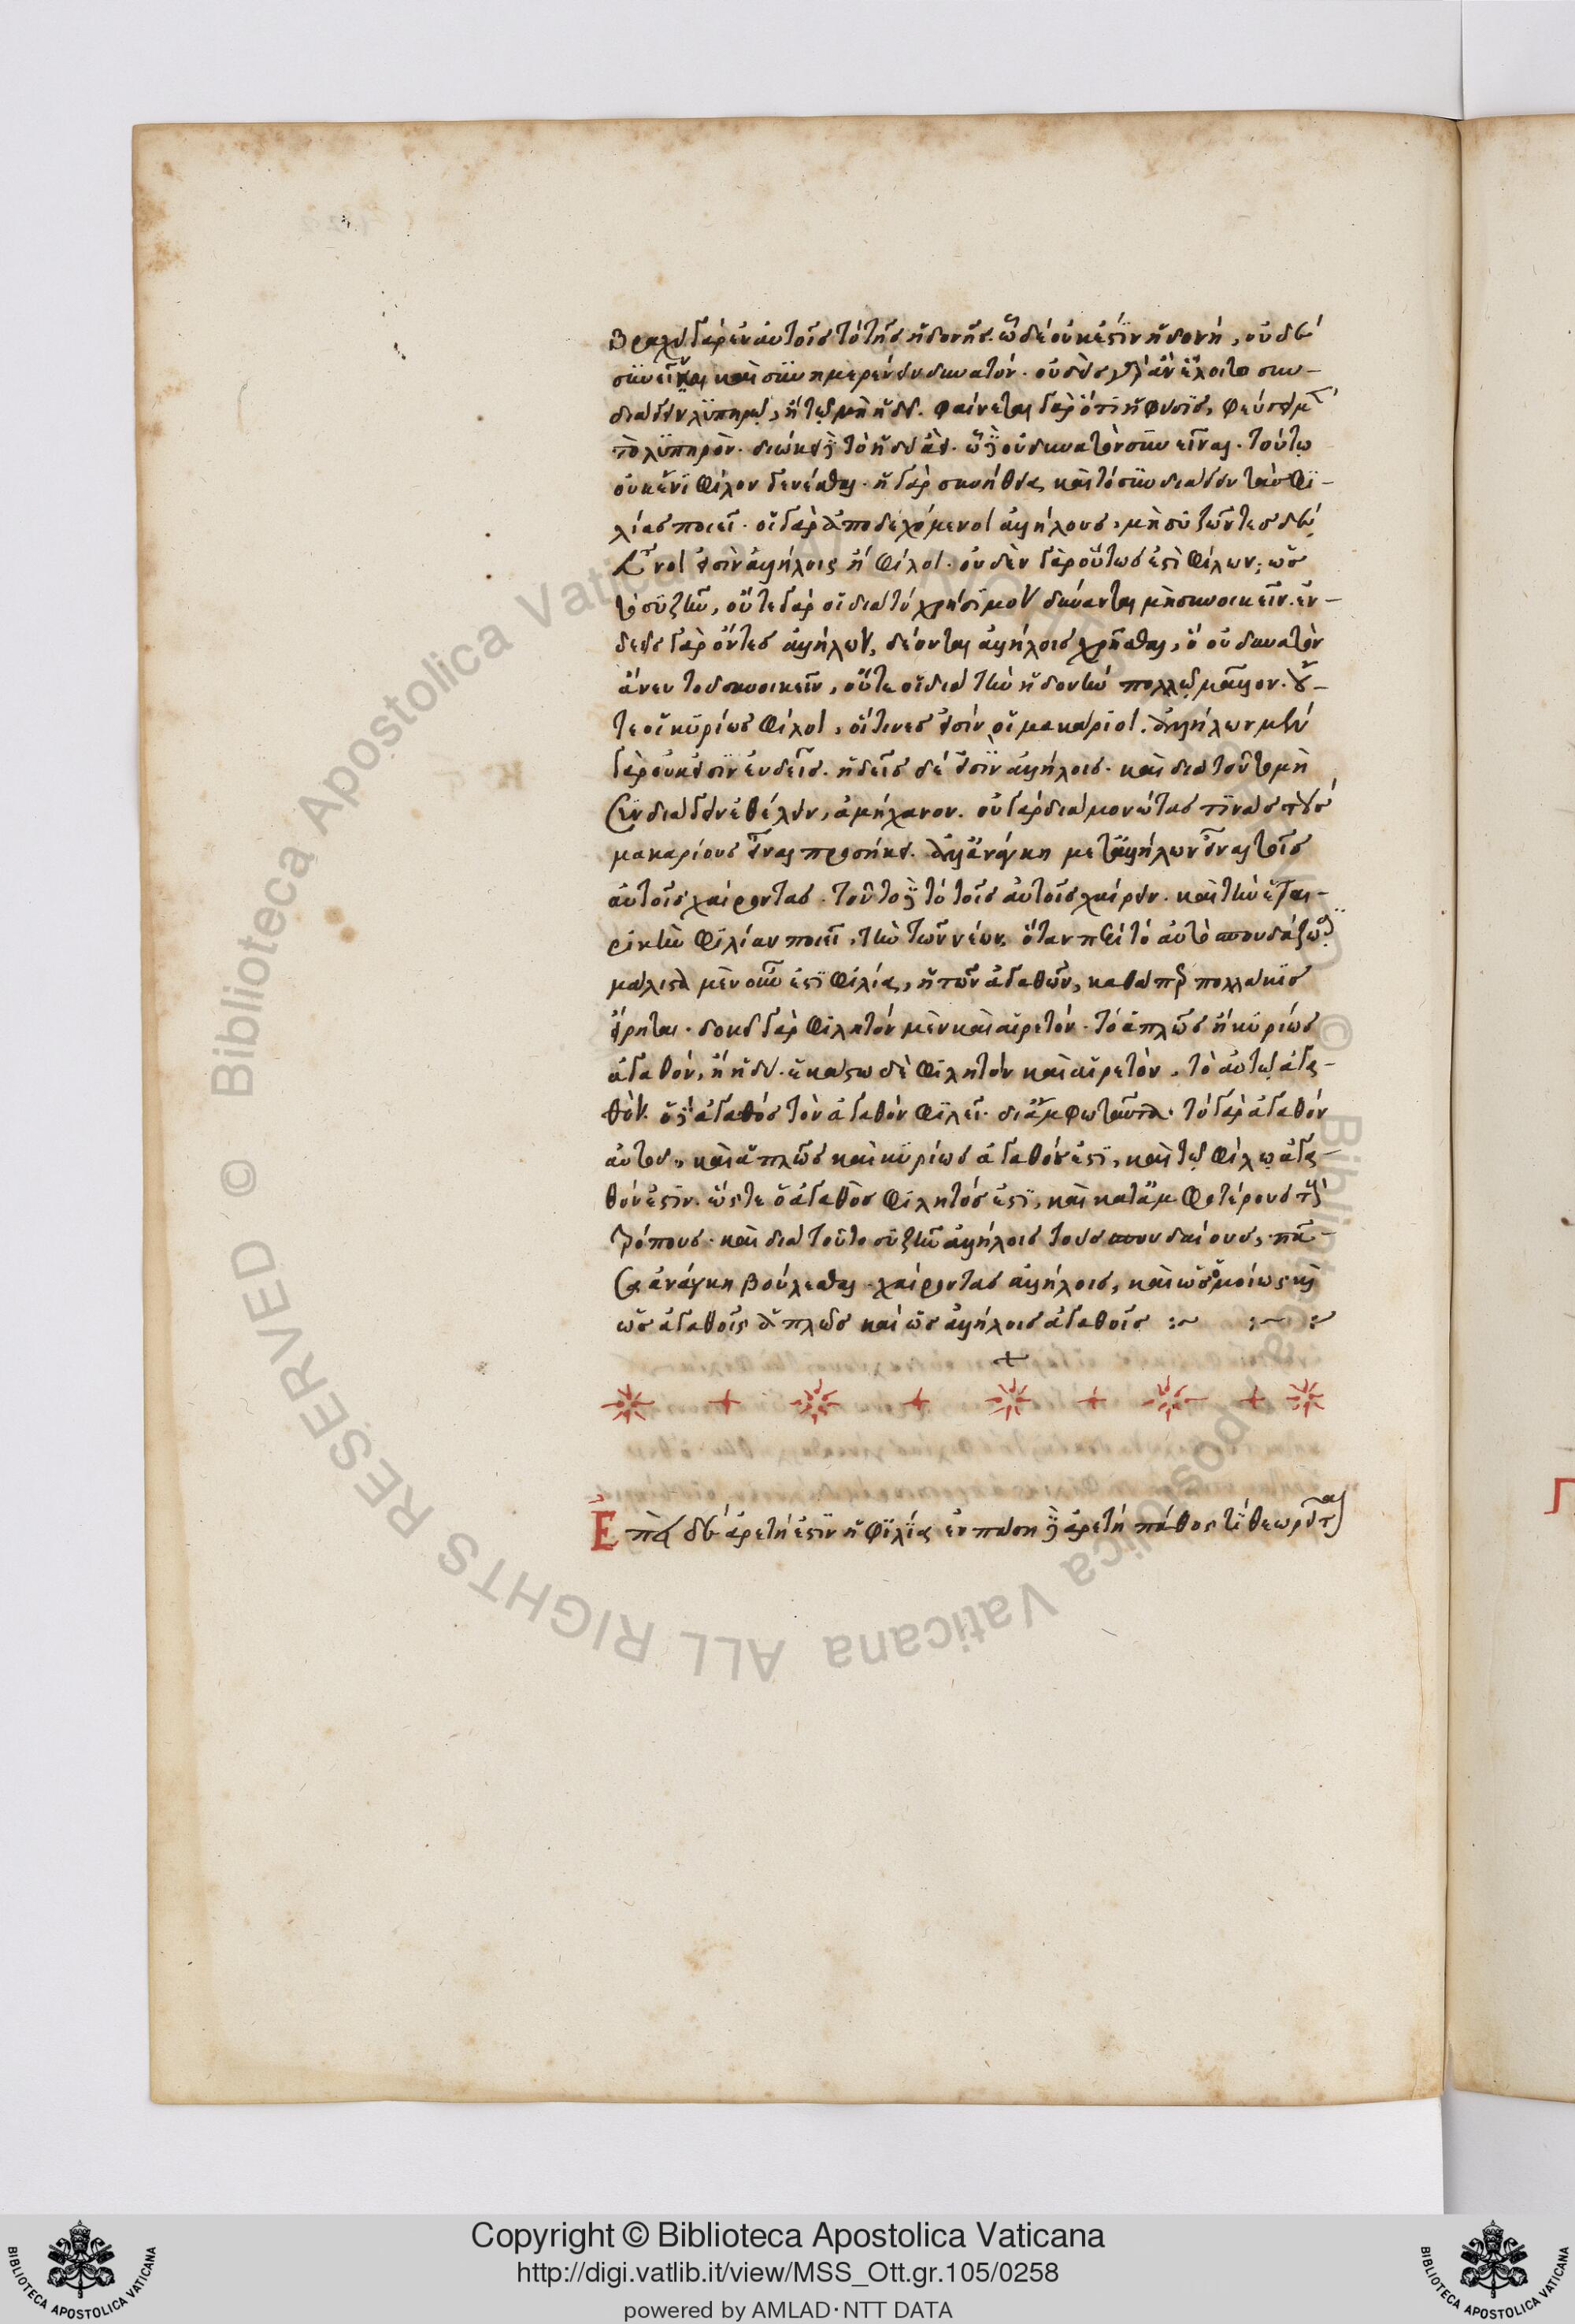 βραχὺ γὰρ ἐν αὐτοῖς τὸ τῆς ἡδονῆς. ᾧ δὲ οὐκ ἔστιν ἡδονὴ, οὐδὲ
συνεῖναι καὶ συνημερεύειν δυνατόν. οὐδεὶς γὰρ ἂν ἕλοιτο συν-
διάγειν λυπηρῷ, ἢ τῷ μὴ ἡδεῖ. φαίνεται γὰρ ὅτι ἡ φύσις, φεύγει μὲν
τὸ λυπηρὸν. διώκει δὲ τὸ ἡδὺ ἀεί. ᾧ δὲ οὐ δυνατὸν συνεῖναι. τούτῳ
οὐκ ἔνι φίλον γενέσθαι. ἡ γὰρ συνήθεια καὶ τὸ συνδιάγειν τὰς φι-
λίας ποιεῖ. οἱ γὰρ ἀποδεχόμενοι ἀλλήλους, μὴ συζῶντες δὲ,
εὖνοι εἰσὶν ἀλλήλοις ἢ φίλοι. οὐδὲν γὰρ οὕτως ἐστὶ φίλων, ὡς
τὸ συζῆν, οὔτε γὰρ οἱ διὰ τὸ χρήσιμον δύνανται μὴ συνοικεῖν. ἐν-
δεεῖς γὰρ ὄντες ἀλλήλων, δέονται ἀλλήλοις χρῆσθαι, ὃ οὐ δυνατὸν
ἄνευ τοῦ συνοικεῖν, οὔτε οἱ διὰ τὴν ἡδονὴν πολλῷ μᾶλλον. οὔ-
τε οἱ κυρίως φίλοι, οἵτινες εἰσὶν οἱ μακάριοι. ἀλλήλων μὲν
γὰρ οὐκ εἰσὶν ἐνδεεῖς. ἡδεῖς δέ εἰσιν ἀλλήλοις. καὶ διὰ τοῦτο μὴ
συνδιάγειν ἐθέλειν, ἀμήχανον. οὐ γὰρ διαμονώτας τινὰς τοὺς
μακαρίους εἶναι προσήκει. ἀλλ' ἀνάγκη μετ' ἀλλήλων εἶναι τοῖς
αὐτοῖς χαίροντας. τοῦτο δὲ τὸ τοῖς αὐτοῖς χαίρειν. καὶ τὴν ἑται-
ρικὴν φιλίαν ποιεῖ, τὴν τῶν νέων, ὅταν περὶ τὸ αὐτὸ σπουδάζωσι.
μάλιστα μὲν οὖν ἐστὶ φιλία, ἡ τῶν ἀγαθῶν, καθάπερ πολλάκις
εἴρηται. δοκεῖ γὰρ φιλητὸν μὲν καὶ αἱρετόν. τὸ ἁπλῶς ἢ κυρίως
ἀγαθόν, ἢ ἡδύ. ἑκάστῳ δὲ φιλητὸν καὶ αἱρετὸν, τὸ αὐτῷ ἀγα-
θόν. ὁ δὲ ἀγαθός τὸν ἀγαθὸν φιλεῖ. δι' ἄμφω ταῦτα. τὸ γὰρ ἀγαθὸν
αὐτοῦ, καὶ ἁπλῶς καὶ κυρίως ἀγαθόν ἐστι, καὶ τῷ φίλῳ ἀγα-
θόν ἐστιν. ὥστε ὁ ἀγαθὸς φιλητός ἐστι, καὶ κατ' ἀμφοτέρους τοὺς
τρόπους. καὶ διὰ τοῦτο συζῆν ἀλλήλοις τοὺς σπουδαίους, πᾶ-
σα ἀνάγκη βούλεσθαι. χαίροντας ἀλλήλοις, καὶ ὡς ὁμοίως καὶ
ὡς ἀγαθοῖς ἁπλῶς καὶ ὡς ἀλλήλοις ἀγαθοῖς :~ :~ :~
Ἐπεὶ δὲ ἀρετή ἐστιν ἡ φιλία ἐν πάσῃ δὲ ἀρετῇ πάθος τι θεωρεῖται